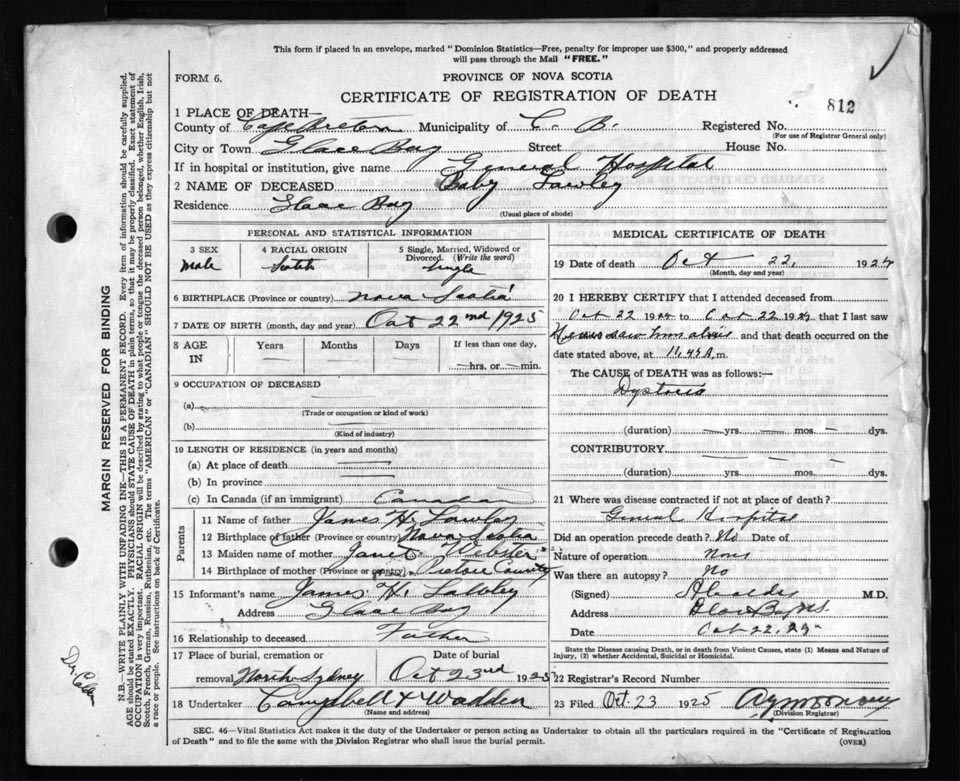 This form if placed in an envelope, marked "Dominion Statistics—Free, penalty for improper use $300," and properly addressed
will pass through the Mail "FREE."
FORM 6.
PROVINCE OF NOVA SCOTIA
CERTIFICATE OF REGISTRATION OF DEATH
812
1 PLACE OF DEATH
County of Cape Breton Municipality of C. B. Registered No.
(For use of Registrar General only)
City or Town Glace Bay Street House No.
If in hospital or institution, give name General Hospital
2 NAME OF DECEASED Baby Lawley
Residence Glace Bay
(Usual place of abode)
PERSONAL AND STATISTICAL INFORMATION
3 SEX 4 RACIAL ORIGIN 5 Single, Married, Widowed or
Divorced. (Write the word)
Male Scotch Single
6 BIRTHPLACE (Province or country) Nova Scotia
7 DATE OF BIRTH (month, day and year) Oct 22nd 1925
8 AGE IN Years Months Days If less than one day,
hrs. or min.
9 OCCUPATION OF DECEASED
(a)
(Trade or occupation or kind of work)
(b)
(Kind of industry)
10 LENGTH OF RESIDENCE (in years and months)
(a) At place of death
(b) In province
(c) In Canada (if an immigrant) Canadian
Parents
11 Name of father James H. Lawley
12 Birthplace of father (Province or country) Nova Scotia
13 Maiden name of mother Janet Webster
14 Birthplace of mother (Province or country) Pictou County
15 Informant's name James H. Lawley
Address Glace Bay
16 Relationship to deceased Father
17 Place of burial, cremation or Date of burial
removal North Sydney Oct 23rd 1925
18 Undertaker Campbell & Wadden
(Name and address)
MEDICAL CERTIFICATE OF DEATH
19 Date of death Oct 22, 192
(Month, day and year)
20 I HEREBY CERTIFY that I attended deceased from
Oct 22 19 to Oct 22 19 that I last saw
Never saw him alive and that death occurred on the
date stated above, at 11,45 m.
The CAUSE of DEATH was as follows:—
Dystocia
(duration) yrs. mos. dys.
CONTRIBUTORY
(duration) yrs. mos. dys.
21 Where was disease contracted if not at place of death?
General Hospital
Did an operation precede death? No Date of
Nature of operation None
Was there an autopsy? No
(Signed) M.D.
Address Glace Bay N.S.
Date Oct 22, 25
State the Disease causing Death, or in death from Violent Causes, state (1) Means and Nature of
Injury, (2) whether Accidental, Suicidal or Homicidal.
22 Registrar's Record Number
23 Filed Oct. 23 1925
(Division Registrar)
SEC. 46—Vital Statistics Act makes it the duty of the Undertaker or person acting as Undertaker to obtain all the particulars required in the "Certificate of Registration
of Death" and to file the same with the Division Registrar who shall issue the burial permit.
(OVER)
MARGIN RESERVED FOR BINDING
N.B.—WRITE PLAINLY WITH UNFADING INK—THIS IS A PERMANENT RECORD. Every item of information should be carefully supplied.
AGE should be stated EXACTLY. PHYSICIANS should STATE CAUSE OF DEATH in plain terms, so that it may be properly classified. Exact statement of
OCCUPATION is very important. RACIAL ORIGIN will be described by stating to what people or tongue the deceased person belonged, whether English, Irish,
Scotch, French, German, Russian, Ruthenian, etc. The terms "AMERICAN" or "CANADIAN" SHOULD NOT BE USED as they express citizenship but not
a race or people. See instructions on back of Certificate.